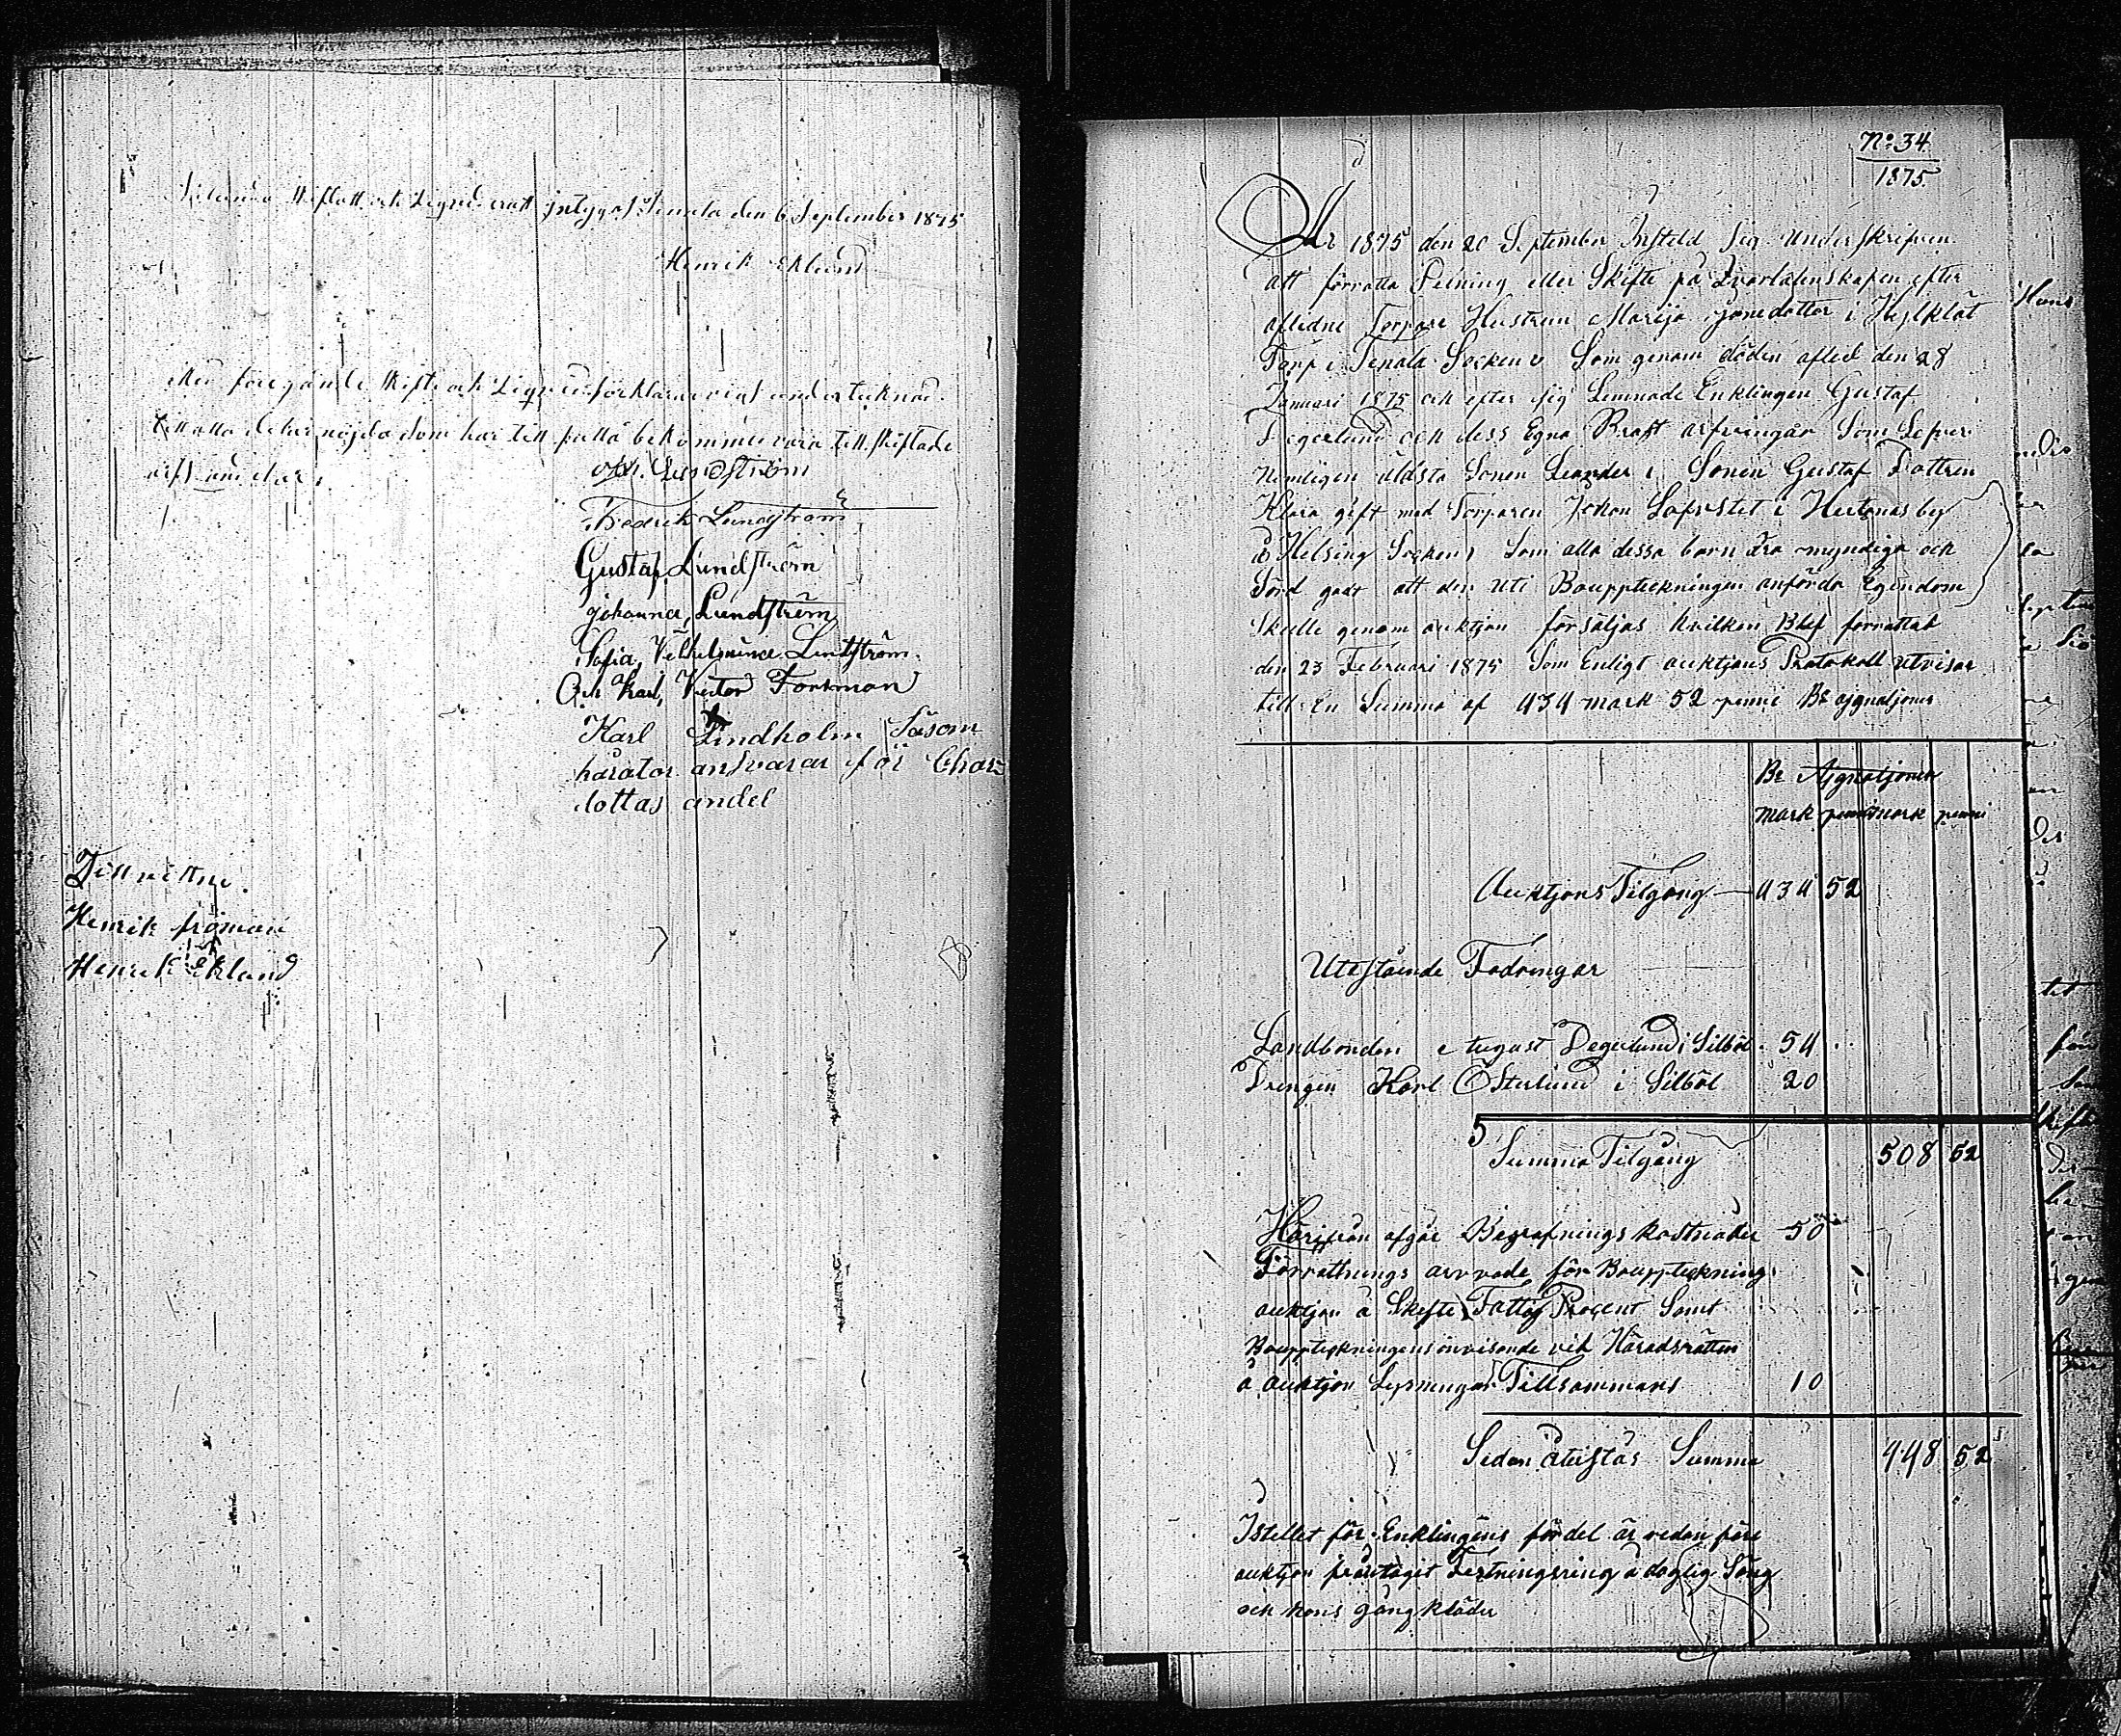 skiftatt och Liqvideratt intygas Tenala den 6 September 1875
Henrik Eklund
Med föregånde Skifte och Liqvid förklarar vi undertecknad
till alla delar nöjda som har till fullo bekommit vara till skiftade
arfs andelar.
Lundström
Fredrik Lundström
Gustaf, Lundström
Johanna, Lundström
Sofia, Vilhelmina Lundström.
Och Karl, Victor Forsman
Karl Lindholm Såsom
kurator andvarar för Char
lottas andel
Till vittne.
Henrik fröman
Henrik Eklund
No 34
1875.
År 1875 den 20 September Insteld Sig Underskrifven
att förrätta Delning eller Skifte på Qvarlåtenskapen efter
aflidne Torpare Hustrun Marija Jonsdotter i
Torp i Tenala Socken Som genom döden afled den 28
Januari 1875 och efter sig Lemnade Enklingen Gustaf
Degerlund och dess Egna Bröst arfvingar Som Lefver
nemligen äldsta Sonen Leander, Sonen Gustaf Dottren
Klara gift med Torparen Johan Löfqvist i by
Helsing Socken, Som alla dessa barn Ära myndiga och
att den uti Bouppteckningen anförda Egendom
Skulle genom auktjon försäljas hvilken Blef förrättat
den 23 Februari 1875 Som Enligt auktjons Protokoll utvisar
till En Summa af 434 mark 52 penni Bo asignatjoner
Bo Asignatjoner
mark penni mark penni
Auktjons Tilgång 434 52
Utestående Fodringar
Landbonden August Degerlund i Silböl 54 .
Drengen Karl Österlund i Silböl 20
Summa Tilgång 508 52
Härifrån afgår Begrafnings kostnader 50
Förrättnings arvode för Bouppteckning
auktjon å Skifte Fattig Procent Samt
Bouppteckningens invisande vid Häradsrätten
å auktjon Lysningar Tillsammans 10
Sedan återstår Summa 448 52
Istellet för Enklingens fördel är redan före
auktjon fråntagit Festningsring å daglig Säng
och hans gångkläder